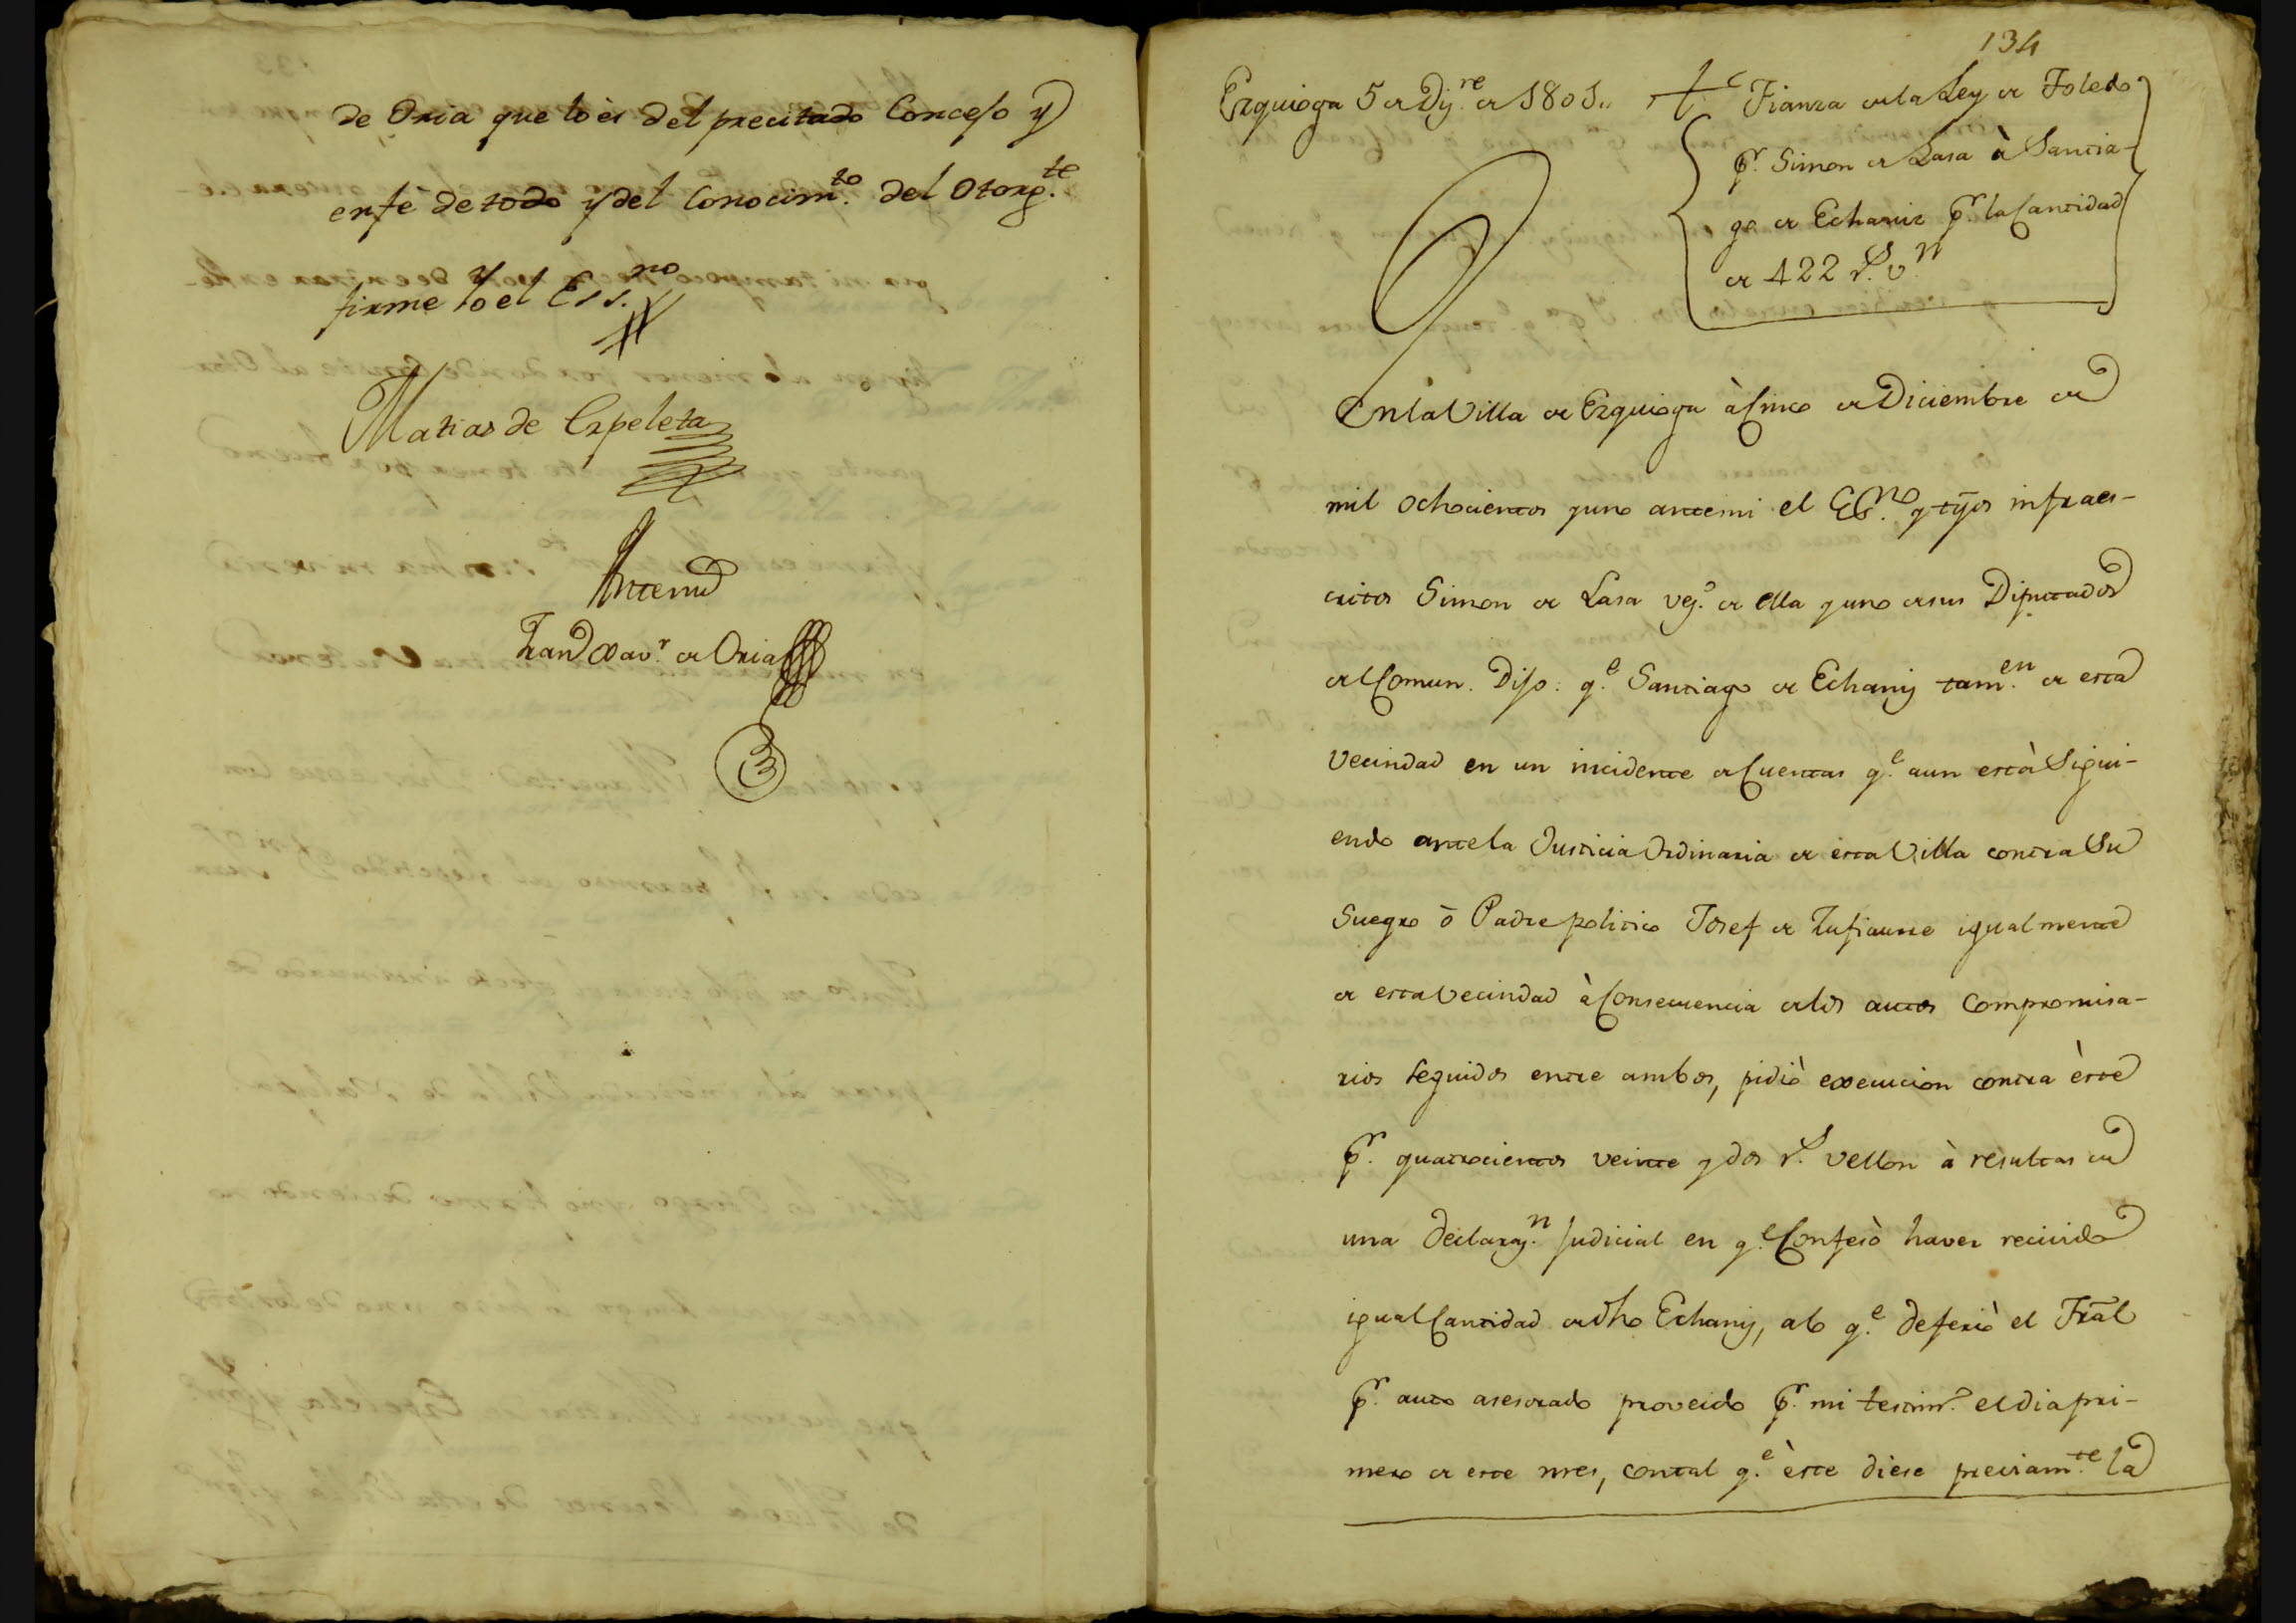 de Oria que lo es del precitado Concejo y
en fè de todo y del Conocim.to del Otorg.te
firme Yo el Ess.no
Matias de Espeleta
Antemi
Fran.co Xav.r de Oria
134
Ezquioga 5 de Dij.re de 1801..
Fianza de la Ley de Toledo
p.r Simon de Lasa à Santia-
go de Echaniz p.r la Cantidad
de 422 r.s v.n
En la Villa de Ezquioga à Cinco de Diciembre de
mil ochocientos y uno ante mi el Es.no y tgos infraes-
critos Simon de Lasa vej.o de ella y uno de sus Diputados
del Comun. Dijo: q.e Santiago de Echanij tam.en de esta
Vecindad en un incidente de Cuentas q.e aun està Sigui-
endo ante la Justicia Ordinaria de esta Villa contra Su
Suegro ò Padre politico Josef de Zufiaurre igualmente
de esta Vecindad à Consecuencia de los autos Compromisa-
rios seguidos entre ambos, pidiò execucion contra èste
p.r quatrocientos veinte y dos r.s vellon à resultas de
una declaraj.n judicial en q.e Confesò haver recivido
igual Cantidad de dho Echanij, a lo q.e defiriò el Tral
p.r auto asesorado proveido p.r mi testim.o el dia pri-
mero de este mes, con tal q.e èste diese previam.te la